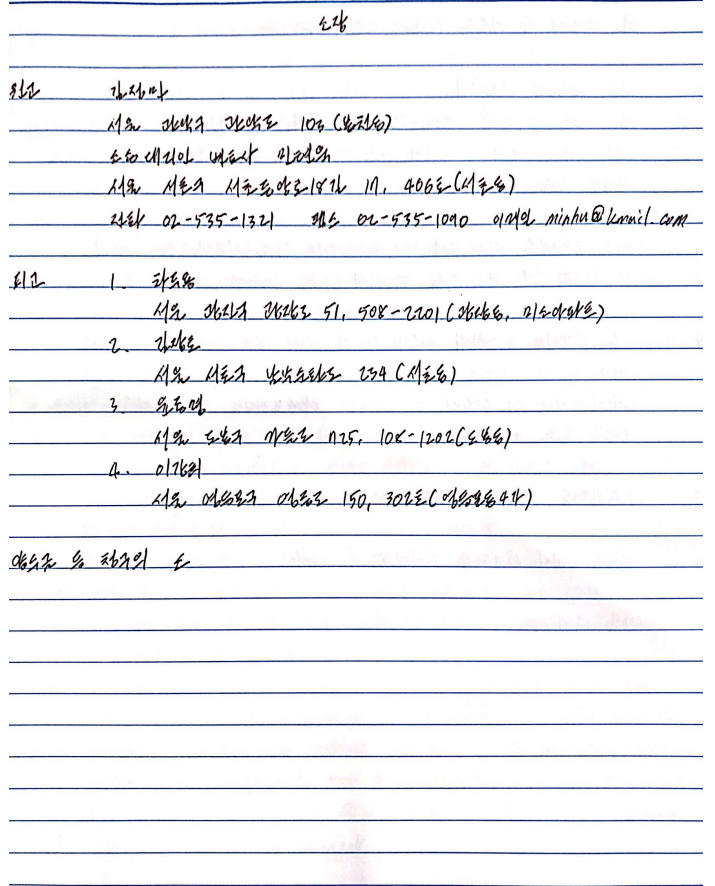 소장
원고 김정마
서울 관악구 관악로 103 (봉천동)
소송대리인 변호사 민현욱
서울 서초구 서초중앙로18길 17, 406호(서초동)
전화 02-535-1321 팩스 02-535-1090 이메일 minhu@kmail.com
피고 1.
서울 광진구 광장로 51, 508-2201 (광장동, 미소아파트)
2. 김장호
서울 서초구 남부순환로 234 (서초동)
3. 윤동명
서울 도봉구 마들로 725, 108-1202(도봉동)
4. 이강희
서울 영등포구 영등로 150, 302호(영등포동4가)
양수금 등 청구의 소